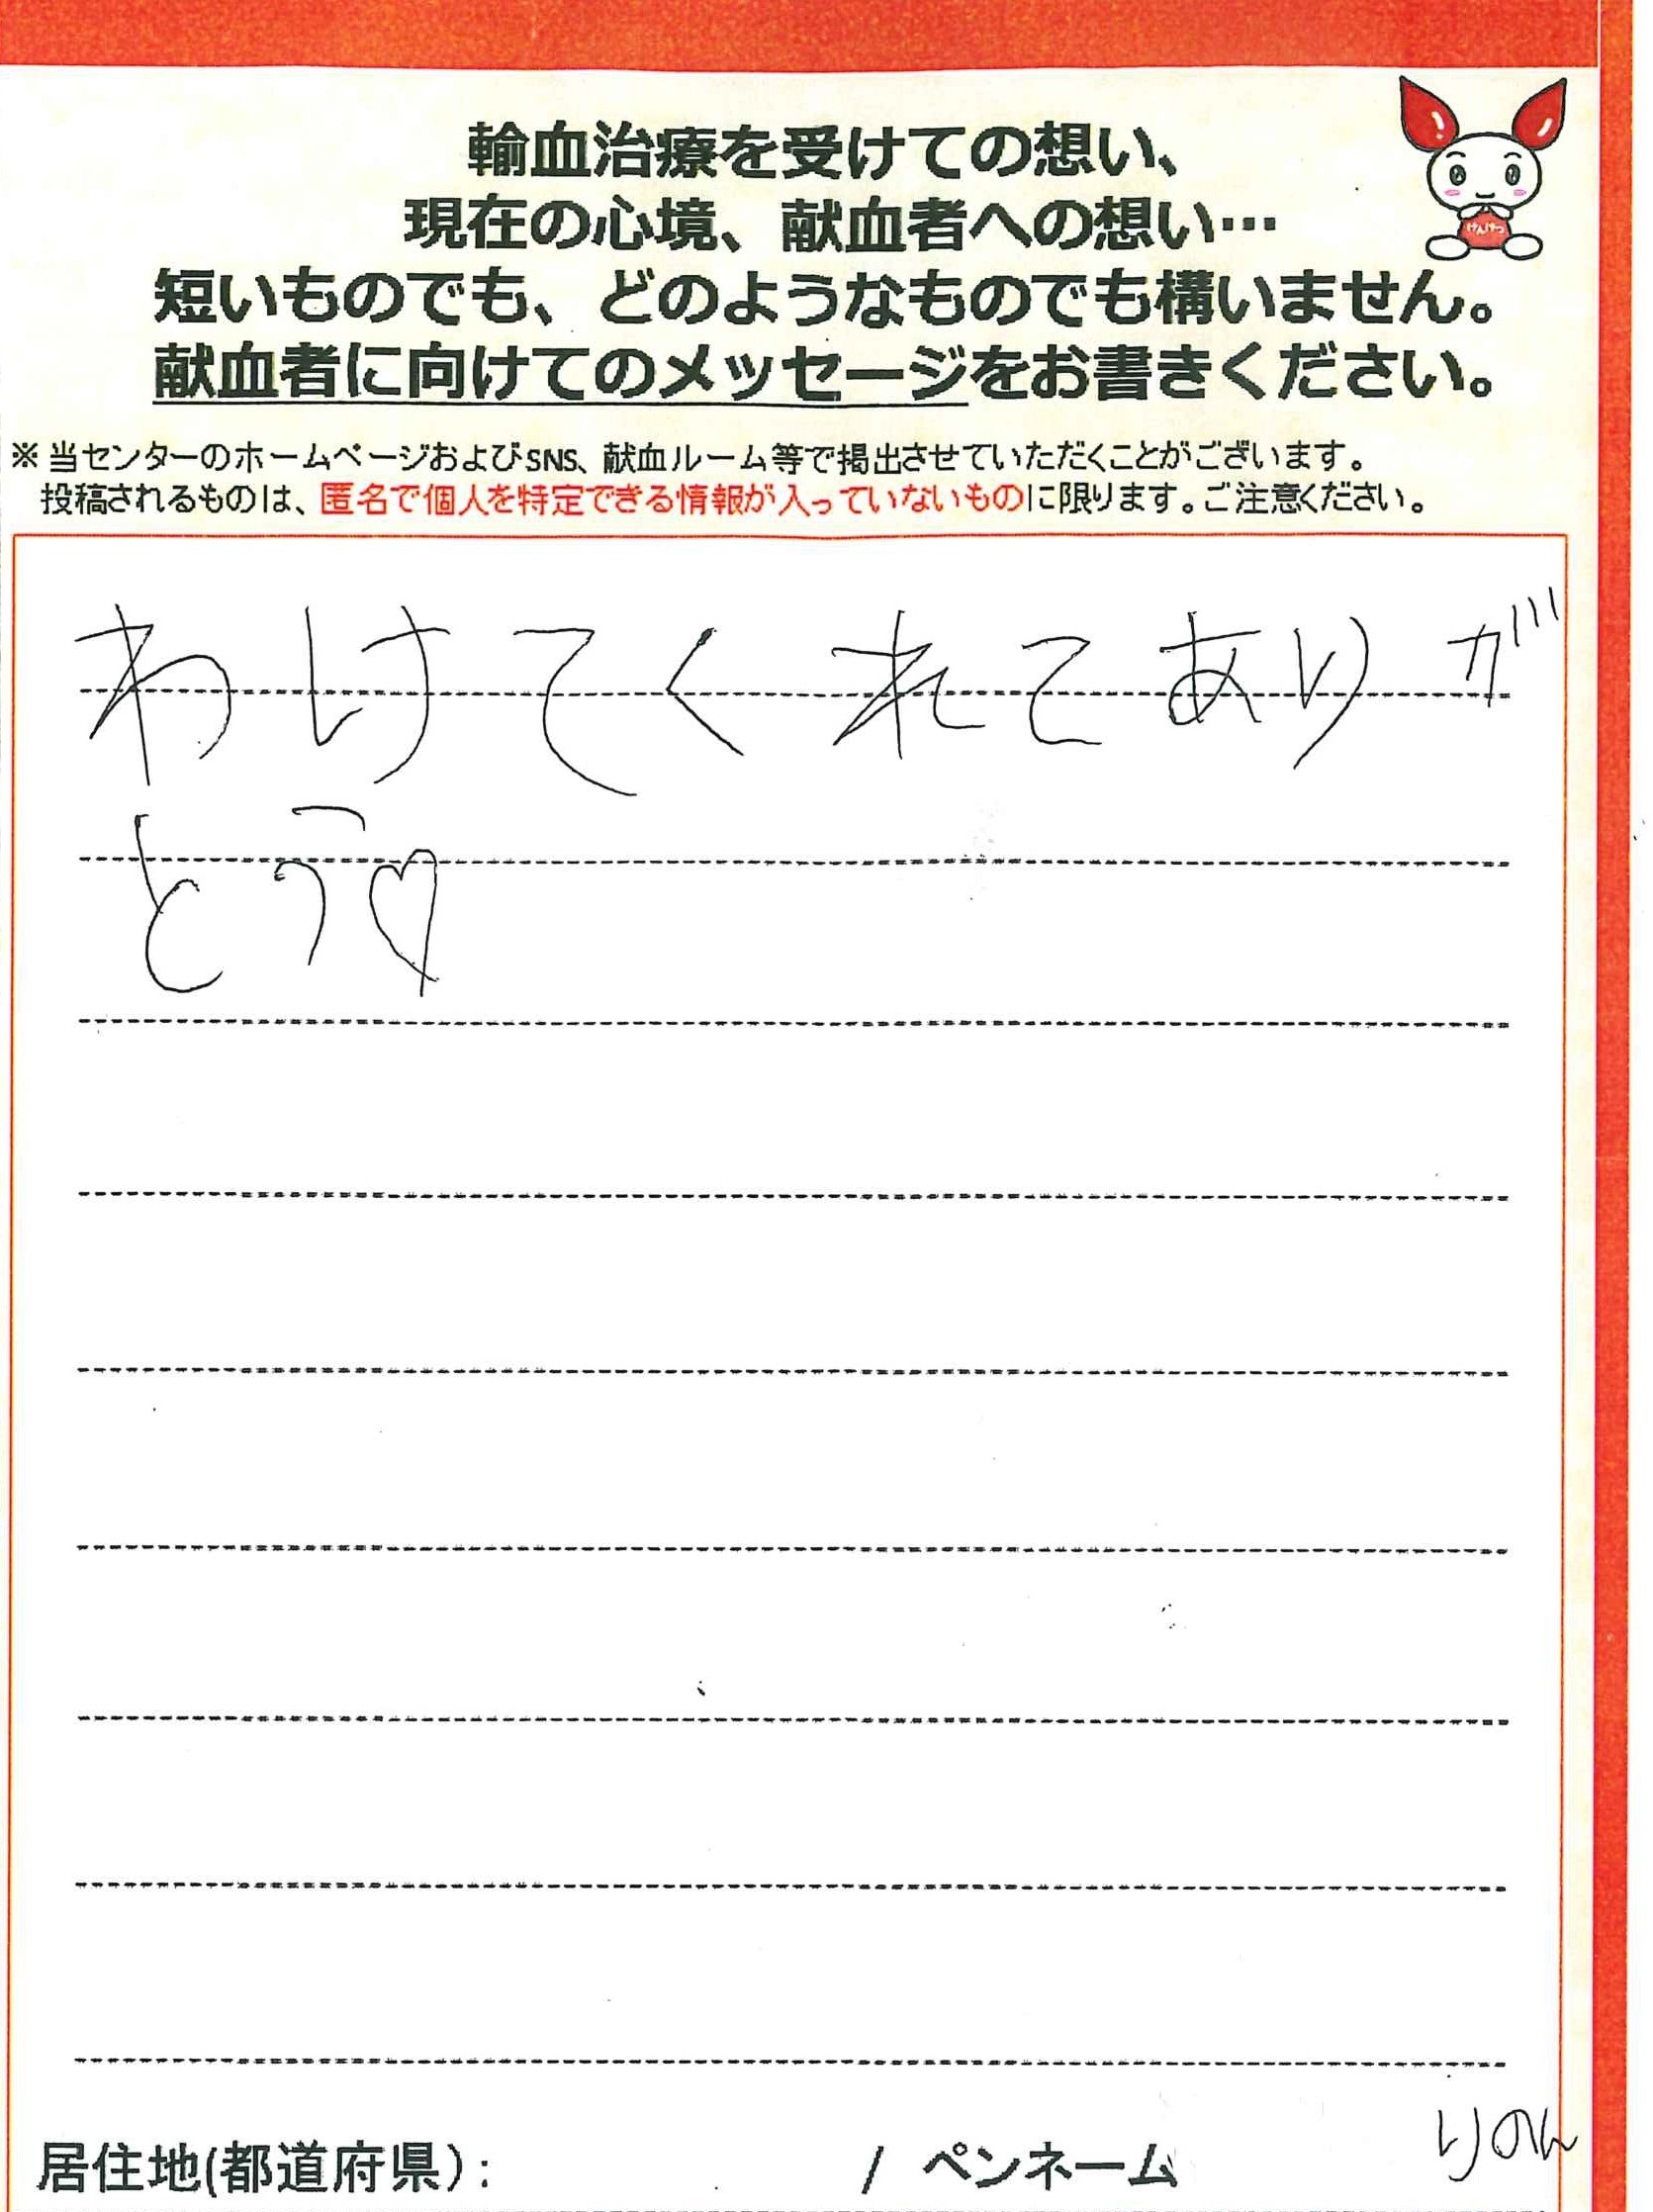 輸血治療を受けての想い、
現在の心境、献血者への想い…
短いものでも、どのようなものでも構いません。
献血者に向けてのメッセージをお書きください。
けんけつ
※当センターのホームページおよびSNS、献血ルーム等で掲出させていただくことがございます。
投稿されるものは、匿名で個人を特定できる情報が入っていないものに限ります。ご注意ください。
わけてくれてありが
とう♡
居住地(都道府県): / ペンネーム りのん